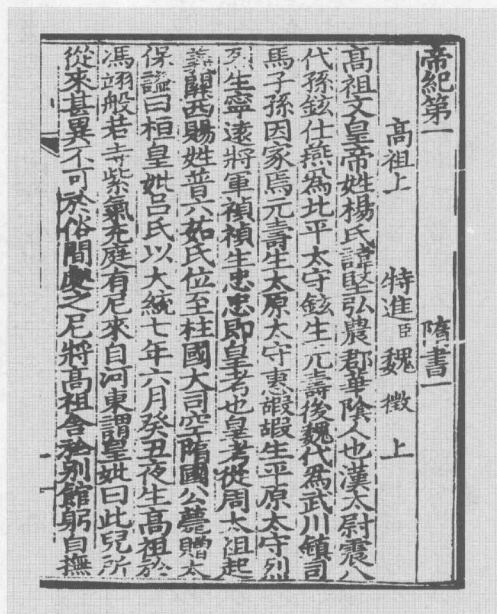 帝紀第一　隋書一
高祖上　特進臣魏徵上
高祖文皇帝姓楊氏諱堅弘農郡華陰人也漢太尉震八
代孫鉉仕燕為北平太守鉉生元壽後魏代爲武川鎮司
馬子孫因家焉元壽生太原太守惠嘏嘏生平原太守烈
烈生寧遠將軍禎禎生忠忠即皇考也皇考從周太祖起
義關西賜姓普六如氏位至柱國大司空隋國公薨贈太
保謚曰桓皇妣呂氏以大統七年六月癸丑夜生高祖於
馮翊般若寺紫氣充庭有尼來自河東謂皇妣曰此兒所
從來甚異不可於俗間處之尼將高祖舍於別館躬自撫